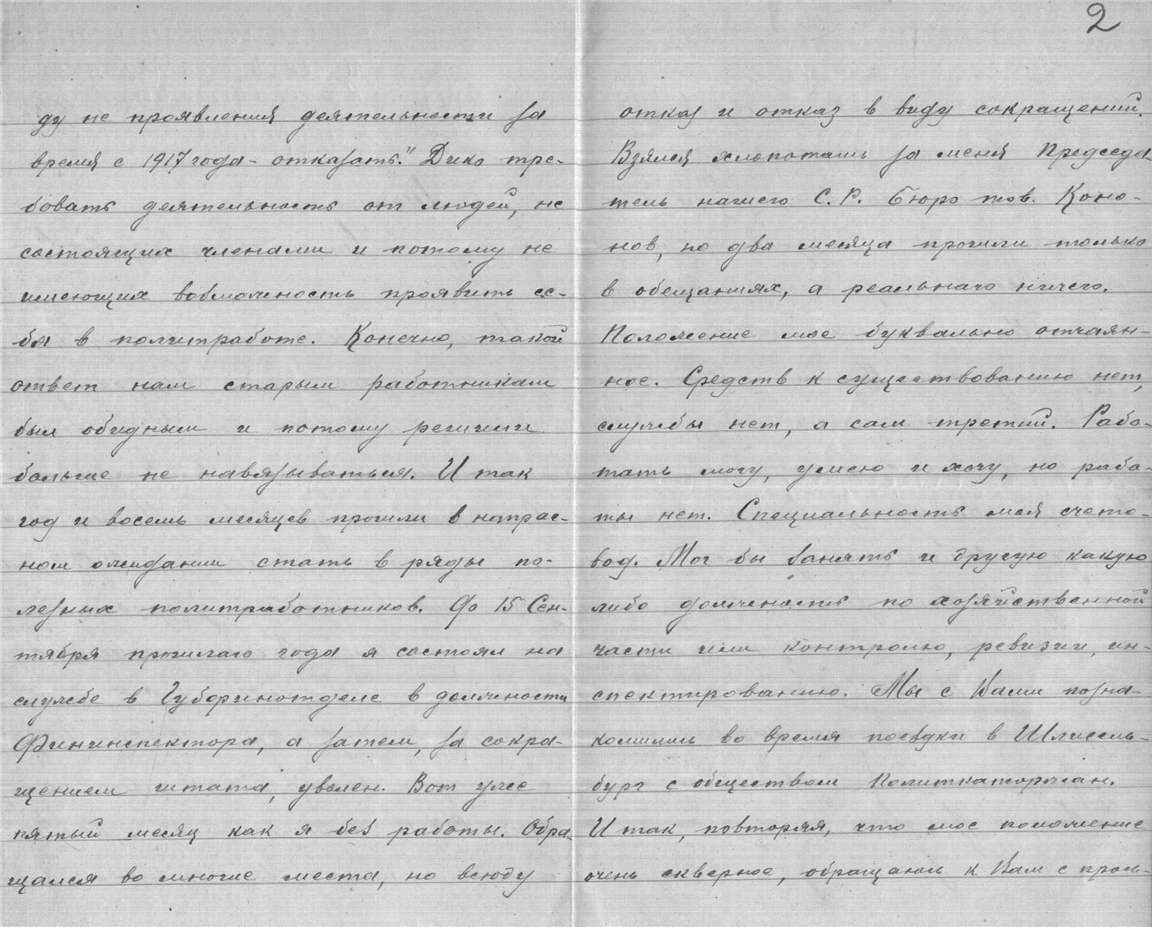 2
ду не проявления деятельности за
время с 1917 года - отказать." Дико тре-
бовать деятельность от людей, не
состоящих членами и потому не
имеющих возможность проявить се-
бя в политработе. Конечно, такой
ответ нам старым работникам
был обидным и потому решили
больше не навязываться. И так
год и восемь месяцев прошли в напрас-
ном ожидании стать в ряды по-
лезных политработников. До 15 Сен-
тября прошлаго года я состоял на
службе в Губфинотделе в должности
Фининспектора, а затем, за сокра-
щением штата, уволен. Вот уже
пятый месяц как я без работы. Обра-
щался во многие места, но всюду
отказ и отказ в виду сокращений.
Взялся хлопотать за меня Председа-
тель нашего С.Р. Бюро тов. Коно-
нов, но два месяца прошли только
в обещаниях, а реальнаго ничего.
Положение мое буквально отчаян-
ное. Средств к существованию нет,
службы нет, а сам третий. Рабо-
тать могу, умею и хочу, но рабо-
ты нет. Специальность моя счето-
вод. Мог бы занять и другую какую
либо должность по хозяйственной
части или контролю, ревизии, ин-
спектированию. Мы с Вами позна-
комились во время поездки в Шлиссель-
бург с обществом Политкаторжан.
И так, повторяя, что мое положение
очень скверное, обращаюсь к Вам с прось-